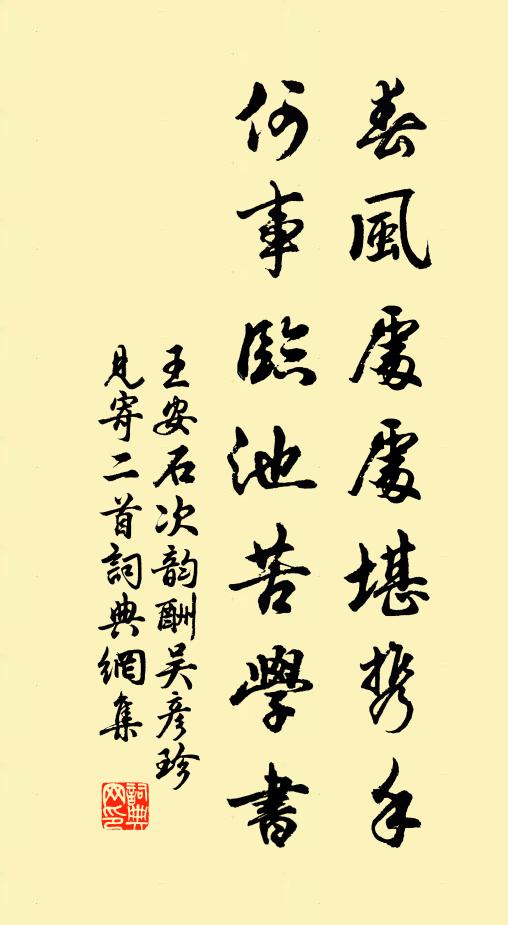 春風處處堪携手
何事臨池苦學書
王安石次韵酬吴彦珍
見寄二首詞典網集
詞典网印